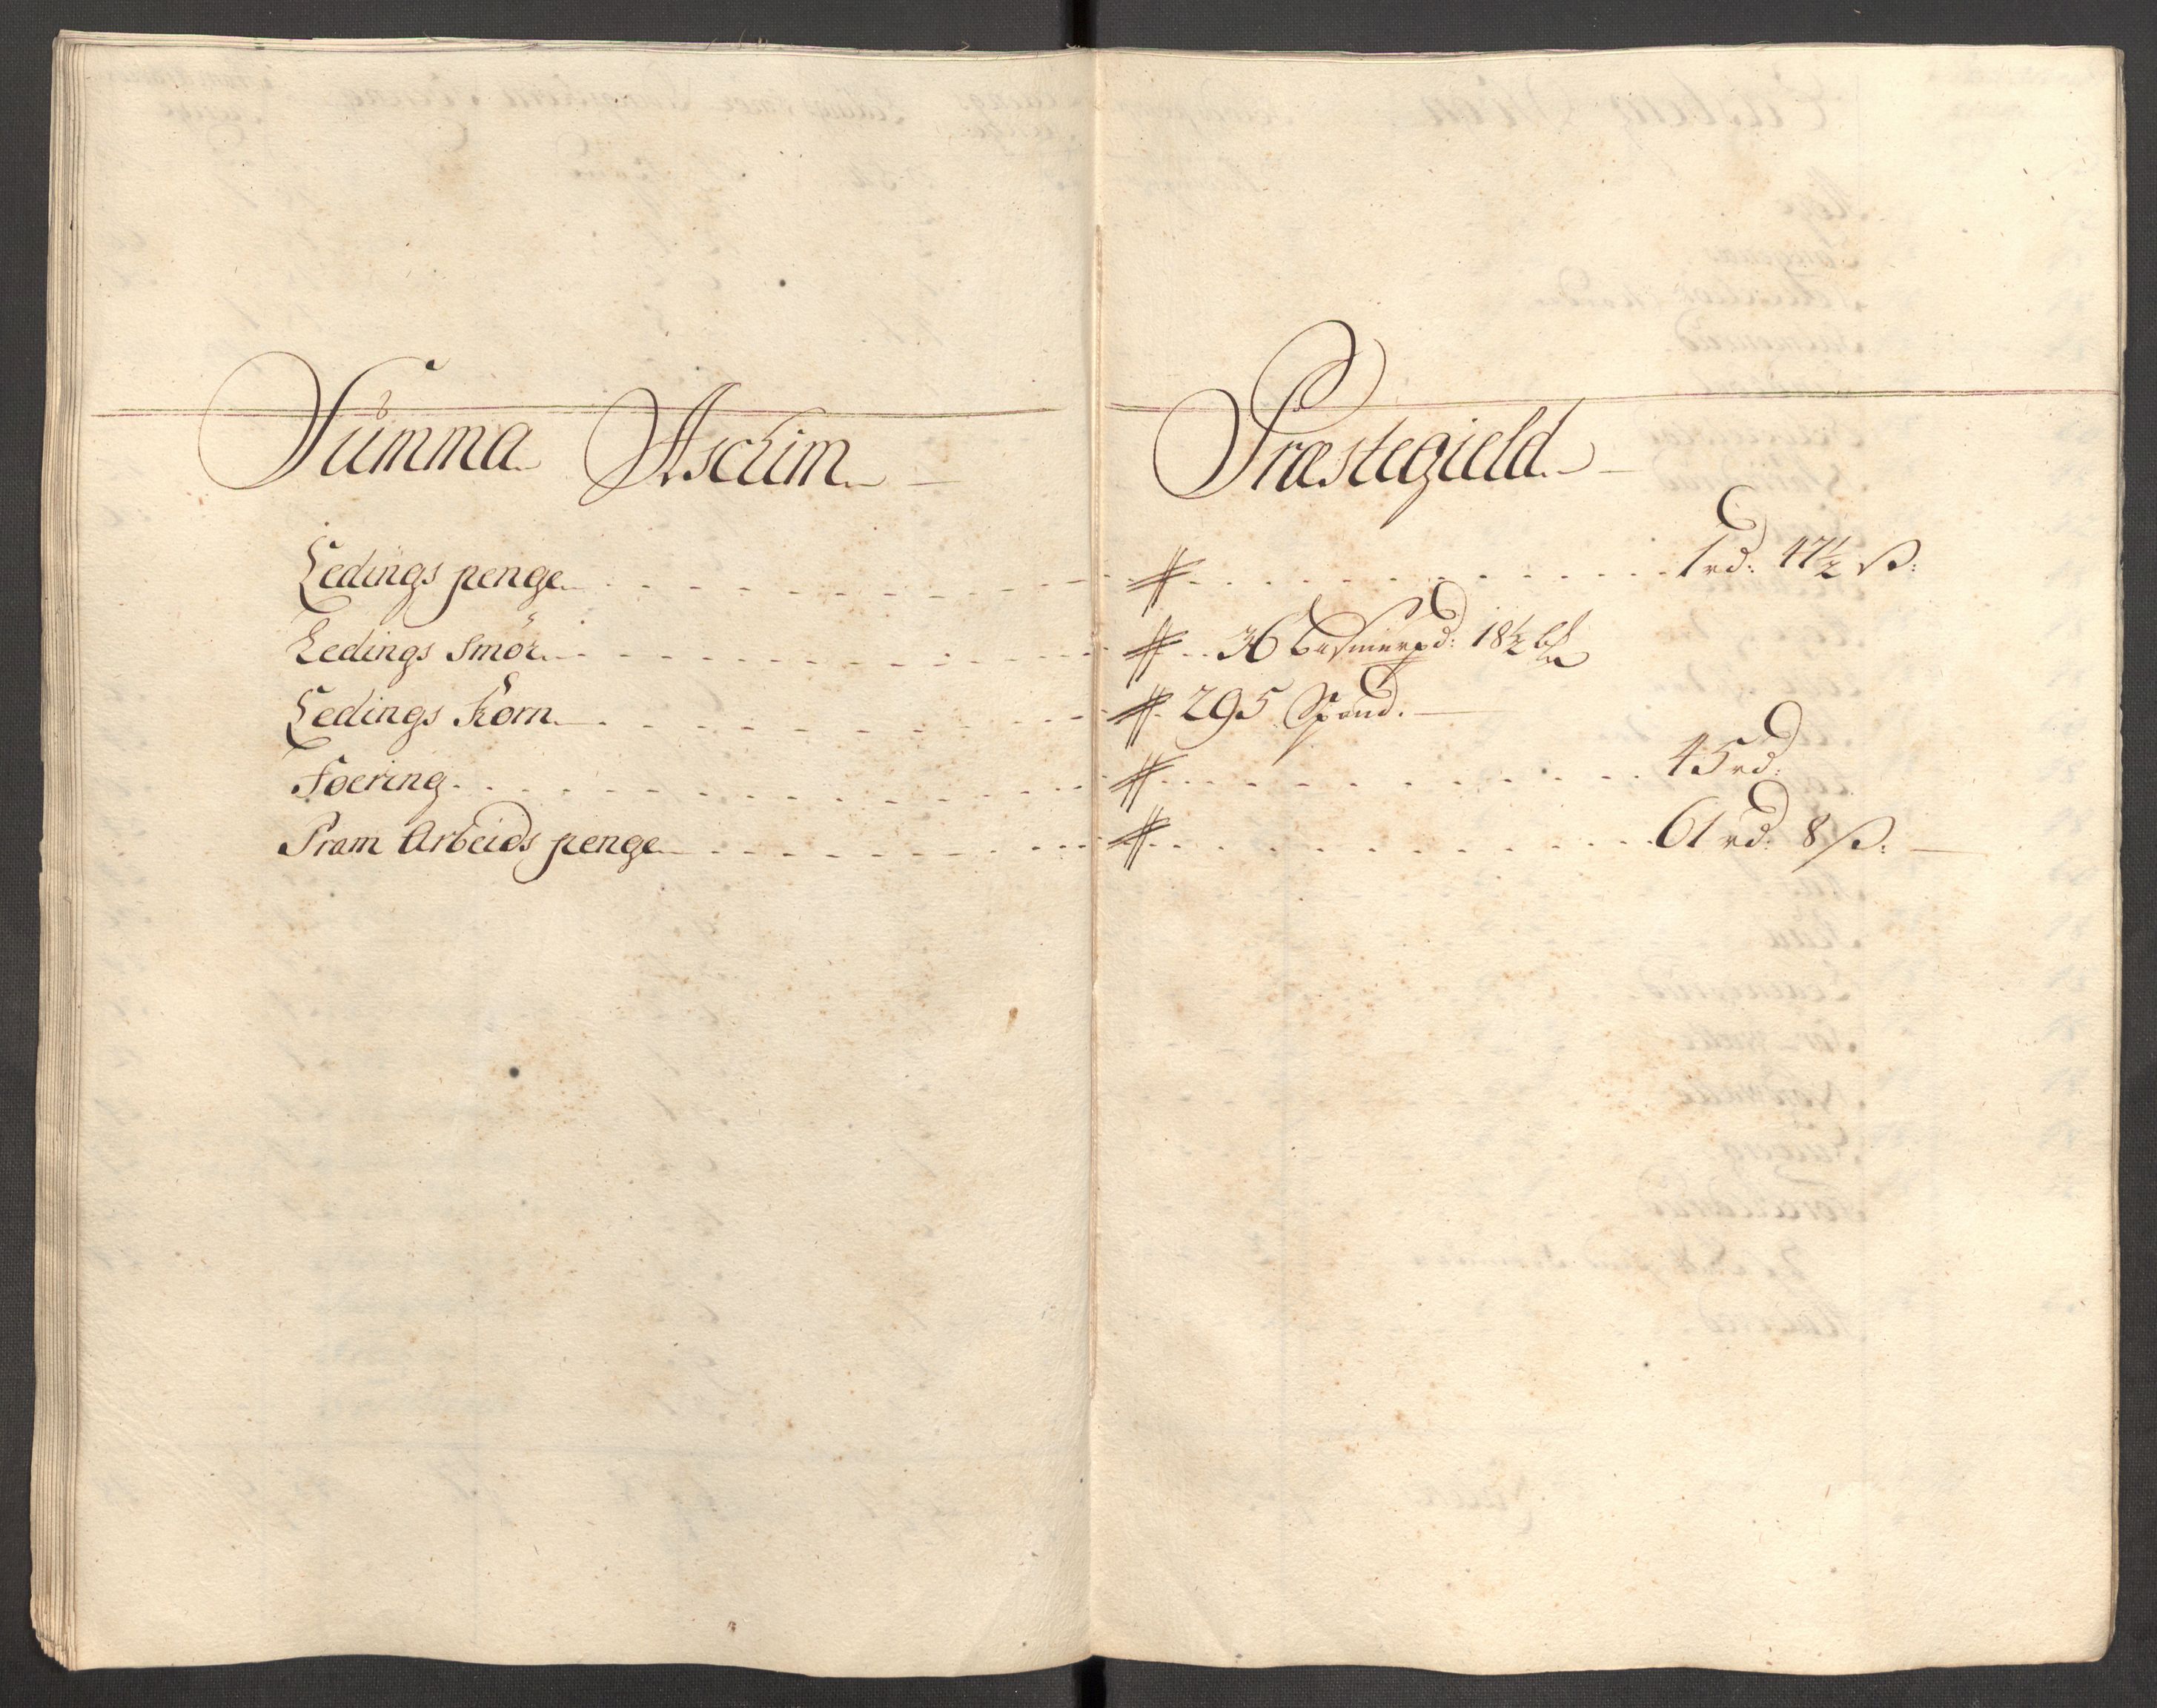 Sümma Aschim Præstegield
Ledings penge # 1 rd: 47½ ß:
Ledings Smör # 36 besmerpd: 18½
Ledings Korn # 295 Spand.
Foering # 45 rd:
Fram Arbeids penge # 61 rd: 8 ß: